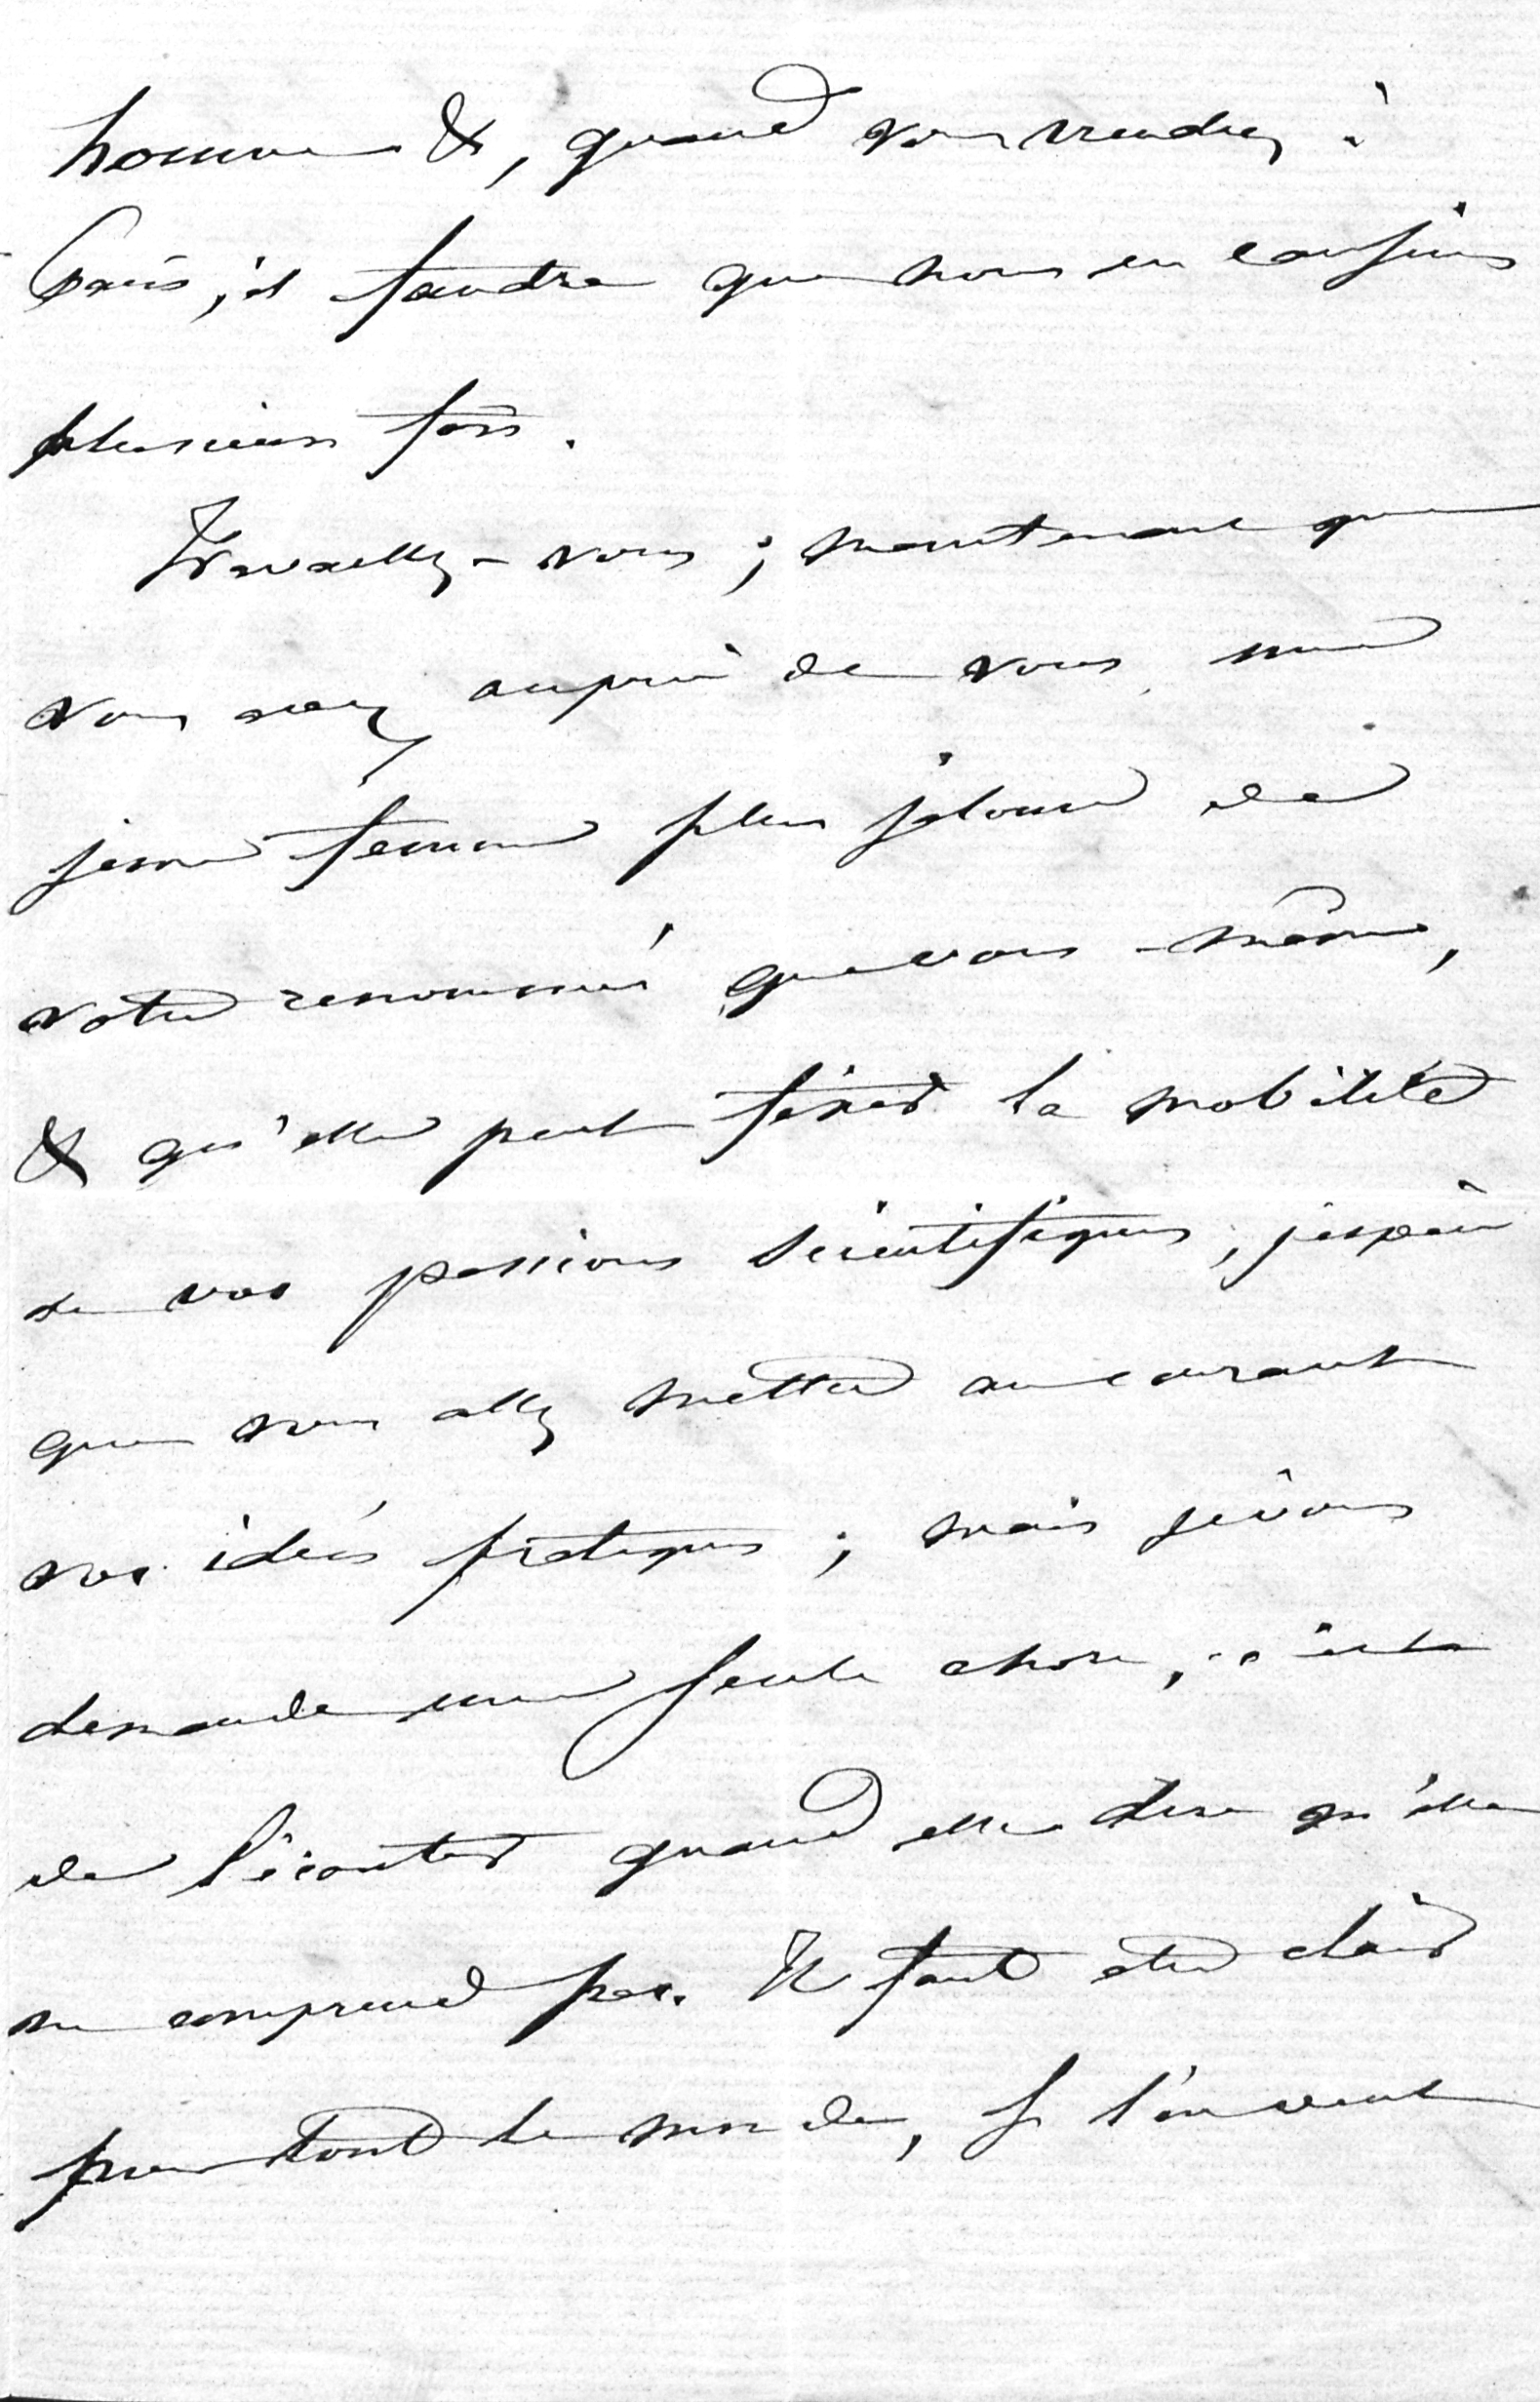 homme &, quand vous viendrez à
Paris, il faudra que nous en causions
plusieurs fois.
Travaillez-vous ; maintenant que
vous avez auprès de vous une
jeune femme plus jalouse de
votre renommée que vous-même,
& qu'elle peut fixer la mobilité
de vos passions scientifiques, j'espère
que vous allez mettre au courant
vos idées pratiques ; mais je vous
demande une seule chose, c'est
de l'écouter quand elle dira qu'elle
ne comprend pas. Il faut être clair
pour tout le monde, si l'on veut